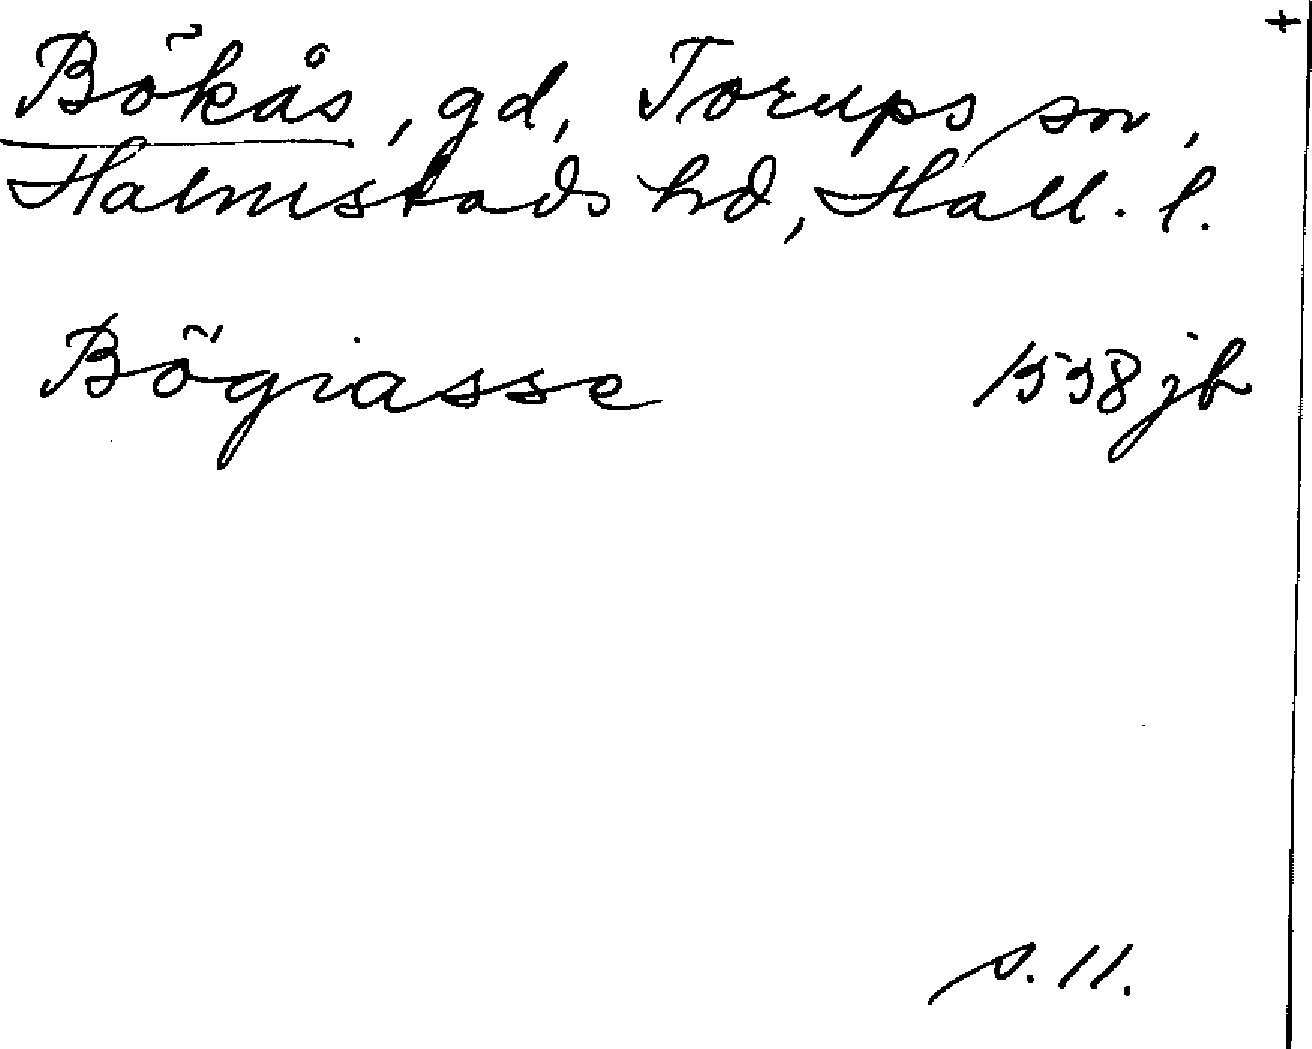 Bökås, gd, Torups sn,
Halmstads hd, Hall. l.
Bögiasse 1538 jb
s. 11.